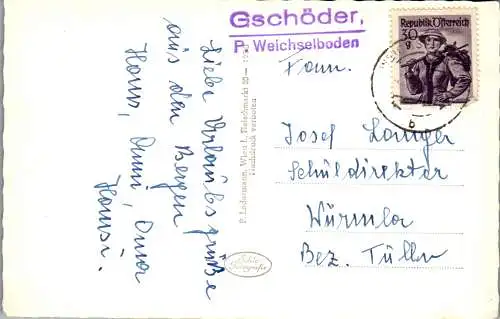 Gschöder,
P. Weichselboden
Republik Österreich
30
g
b
Liebe Urlaubsgrüße
aus den Bergen
Hans, Omi, Oma
Hansi.
P. Ledermann, Wien I, Fleischmarkt 20
Nachdruck verboten
Echte
Fotografie
Fam.
Josef Langer
Schuldirektor
Würmla
Bez. Tulln